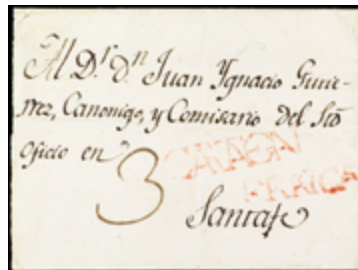 Al D.r d.n Juan Ygnacio Gutie-
rrez, Canonigo, y Comisario del Sto
Oficio en
3
FRANCA
Santafe